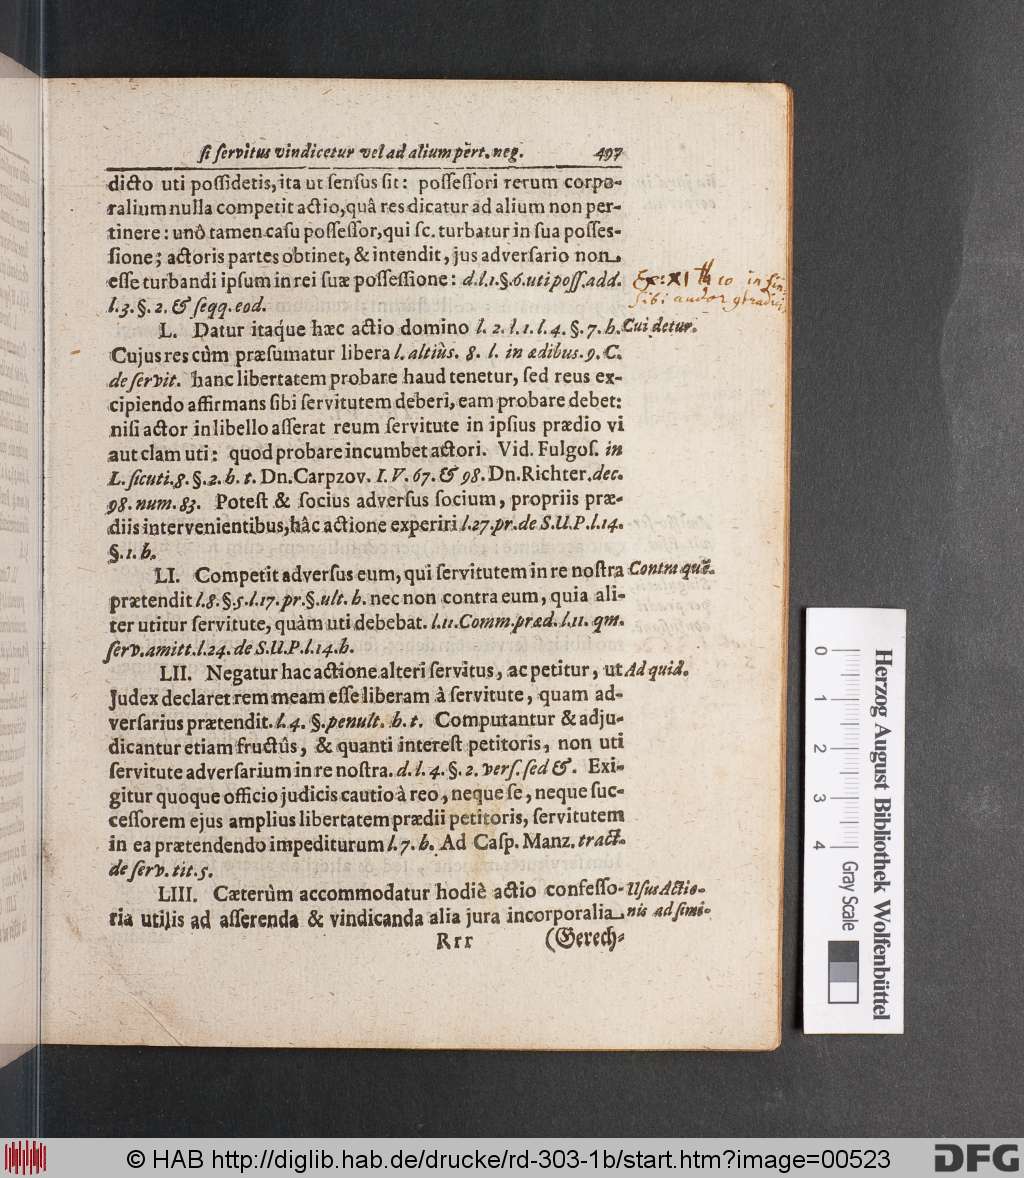 si servitus vindicetur vel ad alium pert. neg. 497
dicto uti possidetis, ita ut sensus sit: possessori rerum corpo-
ralium nulla competit actio, quâ res dicatur ad alium non per-
tinere: unô tamen casu possessor, qui sc. turbatur in sua posses-
sione; actoris partes obtinet, & intendit, jus adversario non
esse turbandi ipsum in rei suæ possessione: d.l.1.§.6. uti poss. add.
l.3.§.2. & seqq. eod.
L. Datur itaq́ue hæc actio domino l. 2. l. 1. l. 4. §. 7. h. Cui detur.
Cujus res cùm præsumatur libera l. altiùs. 8. l. in ædibus. 9. C.
de servit. hanc libertatem probare haud tenetur, sed reus ex-
cipiendo affirmans sibi servitutem deberi, eam probare debet:
nisi actor in libello asserat reum servitute in ipsius prædio vi
aut clam uti: quod probare incumbet actori. Vid. Fulgos. in
L. sicuti. 8. §. 2. h. t. Dn. Carpzov. I. V. 67. & 98. Dn. Richter. dec.
98. num. 83. Potest & socius adversus socium, propriis præ-
diis intervenientibus, hâc actione experiri l. 27. pr. de S.U.P. l. 14.
§. 1. h.
LI. Competit adversus eum, qui servitutem in re nostra Contra quẽ.
prætendit l. 8. §. 5. l. 17. pr. §. ult. h. nec non contra eum, quia ali-
ter utitur servitute, quàm uti debebat. l. 11. Comm. præd. l. 11. qm.
serv. amitt. l. 24. de S.U.P. l. 14. h.
LII. Negatur hac actione alteri servitus, ac petitur, ut Ad quid.
Judex declaret rem meam esse liberam à servitute, quam ad-
versarius prætendit. l. 4. §. penult. h. t. Computantur & adju-
dicantur etiam fructûs, & quanti interest petitoris, non uti
servitute adversarium in re nostra. d. l. 4. §. 2. vers. sed &. Exi-
gitur quoque officio judicis cautio à reo, neque se, neque suc-
cessorem ejus amplius libertatem prædii petitoris, servitutem
in ea prætendendo impediturum l. 7. h. Ad Casp. Manz. tract.
de serv. tit. 5.
LIII. Cæterùm accommodatur hodiè actio confesso- Usus Actio-
ria utilis ad asserenda & vindicanda alia jura incorporalia nis ad simi-
Rrr (Gerech-
0 1 2 3 4
Gray Scale
Herzog August Bibliothek Wolfenbüttel
© HAB http://diglib.hab.de/drucke/rd-303-1b/start.htm?image=00523
DFG